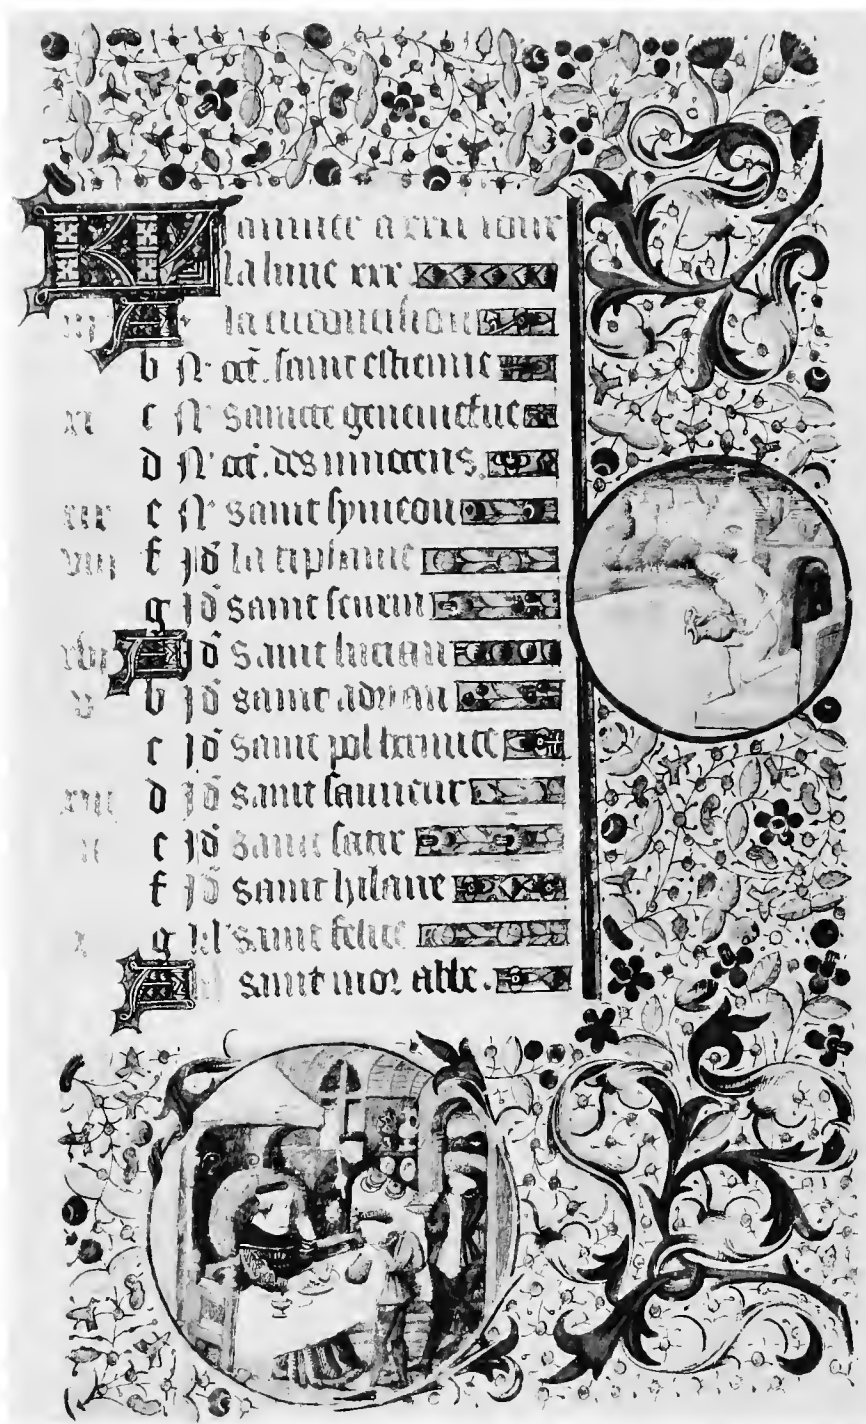 KL Januier a xxxi iour
la lune xxx.
iii A la circoncision
b Nº oct. saint estienne
xi c Nº sainte geneuiefue
d Nº oct. des innocens.
xix e Nº saint symeon
viii f id la tiphaine
g id saint seurin
xvi A id saint lucian
v b id saint adrian
c id saint pol hermite
d id saint sauueur
ii e id saint satir
f id saint hilaire
x g kl' saint felice
A saint mor abbe.